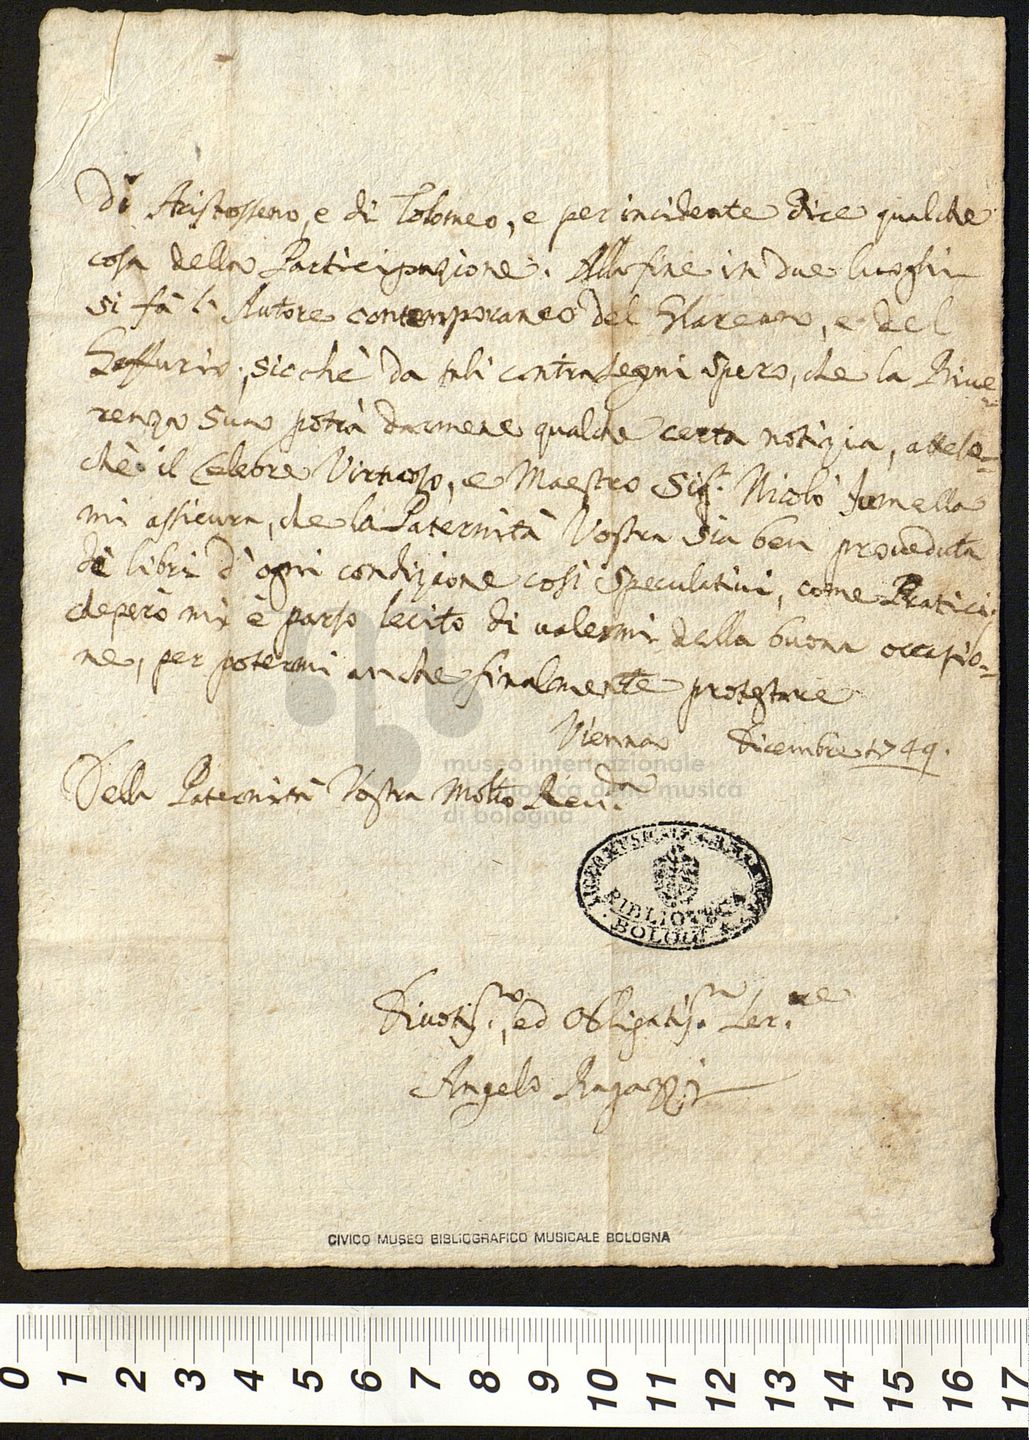 Di Aristosseno, e di Tolomeo, e per incidente dice qualche
cosa della Participazione. Alla fine in due luoghi
si fà l'Autore contemporaneo del Glareano, e del
Gaffurio, sicchè da tali contrasegni spero, che la Rive=
renza Sua potrà darmene qualche certa notizia, attese=
chè il Celebre Virtuoso, e Maestro Sig.r Nicolò Jumella
mi assicura, che la Paternità Vostra sia ben proveduta
di libri d'ogni condizione così speculativi, come Pratici,
che però mi è parso lecito di valermi della buona occasio=
ne, per potermi anche finalmente protestare
Vienna Dicembre 1749.
Della Paternità Vostra Molto Rev.da
museo internazionale
e biblioteca della musica
di bologna
BIBLIOTECA
BOLOGNA
Divotis.mo, ed Obligatis.mo Ser.re
Angelo Ragazzi
CIVICO MUSEO BIBLIOGRAFICO MUSICALE BOLOGNA
0 1 2 3 4 5 6 7 8 9 10 11 12 13 14 15 16 17